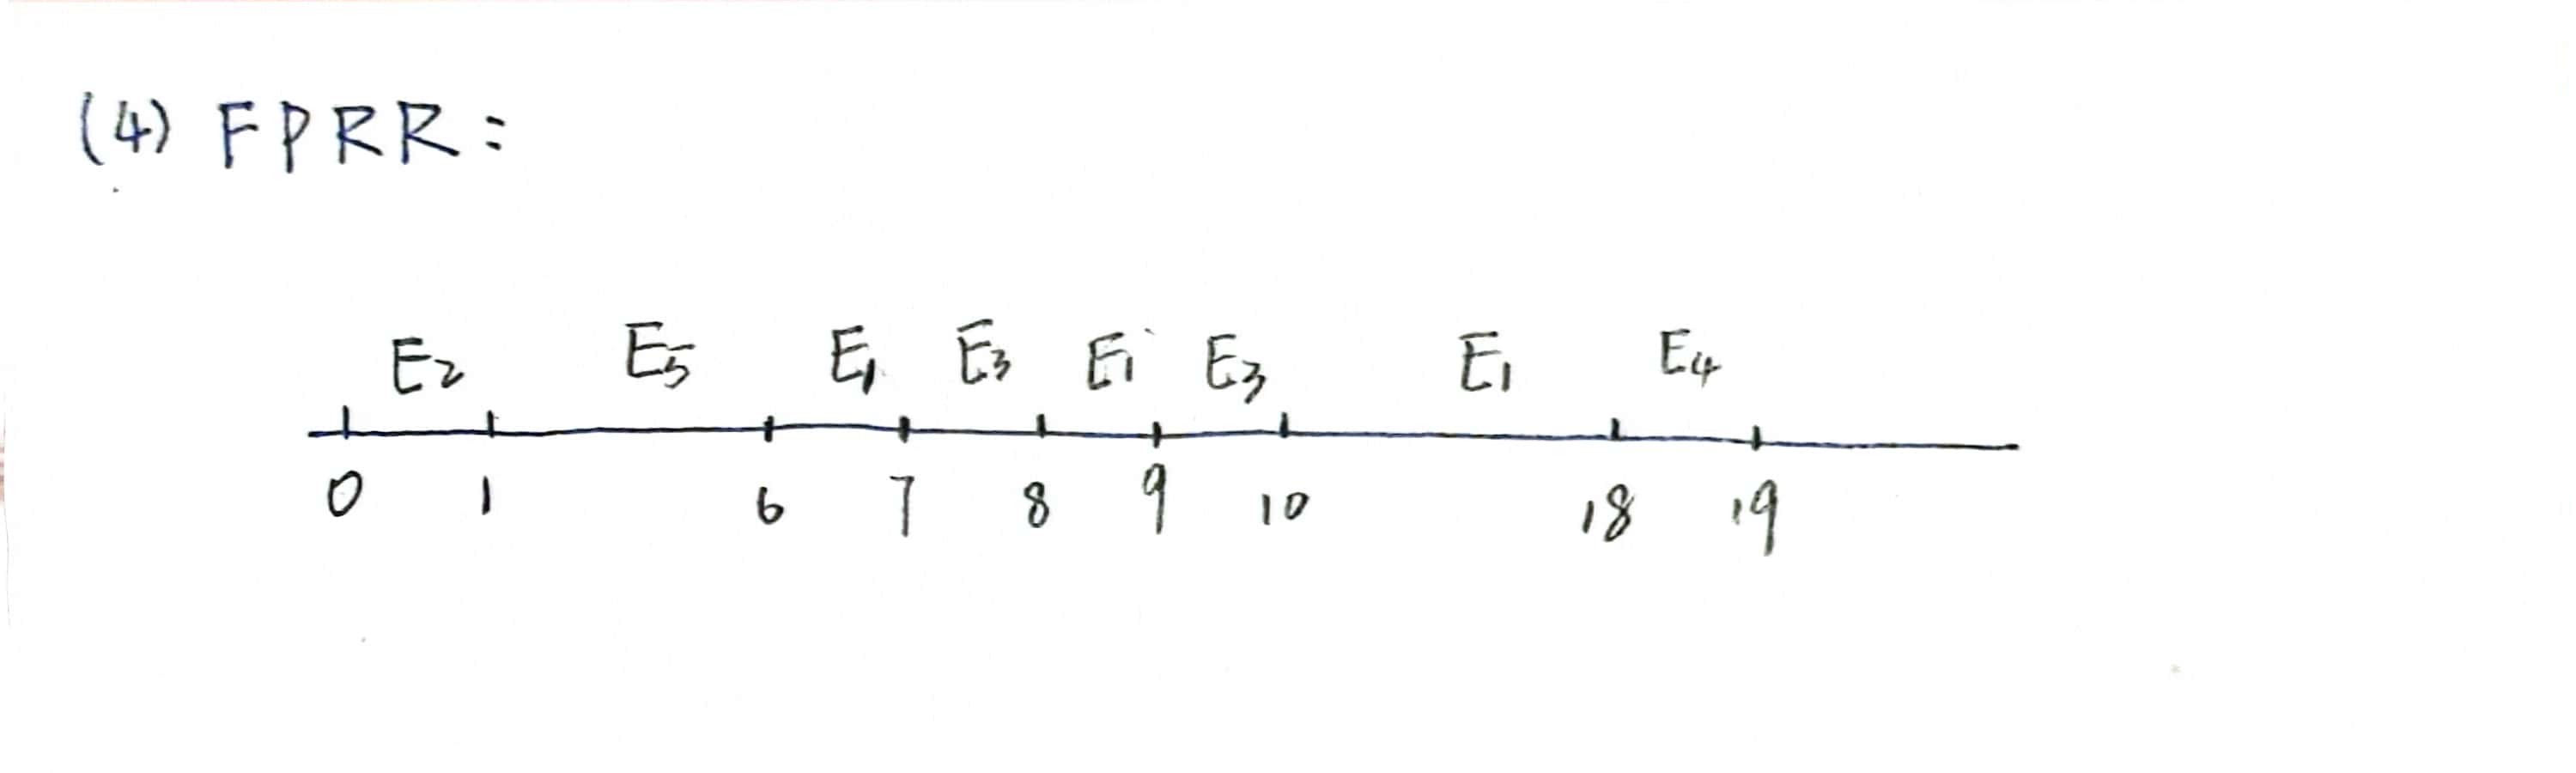 (4) FPRR:
E2 E5 E1 E3 E1 E3 E1 E4
0 1 6 7 8 9 10 18 19